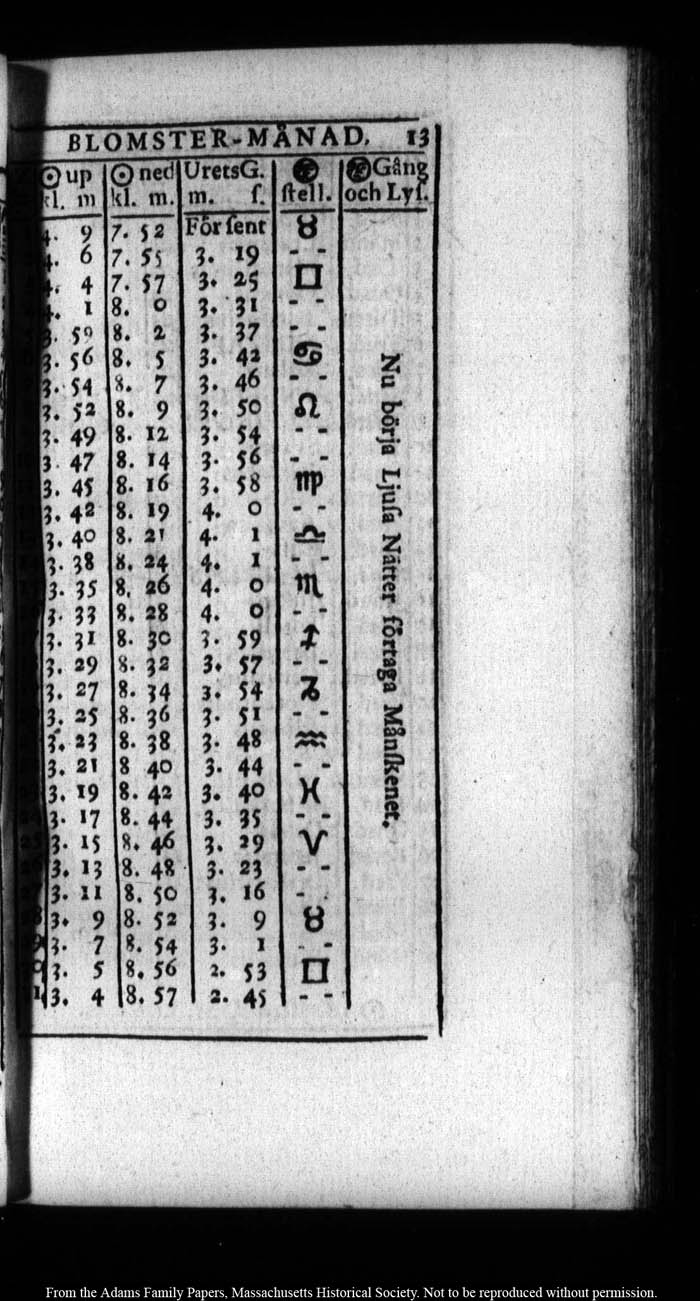 BLOMSTER-MÅNAD. 13
☉ up ☉ ned UretsG. ſtell. Gång
kl. m kl. m. m. ſ. och Lyſ.
4. 9 7. 52 För ſent ♉
4. 6 7. 55 3. 19 - -
4. 4 7. 57 3. 25 □
4. 1 8. 0 3. 31 - -
3. 59 8. 2 3. 37 - -
3. 56 8. 5 3. 42 ♋
3. 54 8. 7 3. 46 - -
3. 52 8. 9 3. 50 ♌
3. 49 8. 12 3. 54 - -
3. 47 8. 14 3. 56 - -
3. 45 8. 16 3. 58 ♍
3. 42 8. 19 4. 0 - -
3. 40 8. 21 4. 1 ♎
3. 38 8. 24 4. 1 - -
3. 35 8. 26 4. 0 ♏
3. 33 8. 28 4. 0 - -
3. 31 8. 30 3. 59 ♐
3. 29 8. 32 3. 57 - -
3. 27 8. 34 3. 54 ♑
3. 25 8. 36 3. 51 - -
3. 23 8. 38 3. 48 ♒
3. 21 8 40 3. 44 - -
3. 19 8. 42 3. 40 ♓
3. 17 8. 44 3. 35 - -
25 3. 15 8. 46 3. 29 ♈
26 3. 13 8. 48 3. 23 - -
3. 11 8. 50 3. 16 -
3. 9 8. 52 3. 9 ♉
9 3. 7 8. 54 3. 1 - -
0 3. 5 8. 56 2. 53 □
1 3. 4 8. 57 2. 45 - -
Nu börja Ljuſa Nätter förtaga Månſkenet.
From the Adams Family Papers, Massachusetts Historical Society. Not to be reproduced without permission.